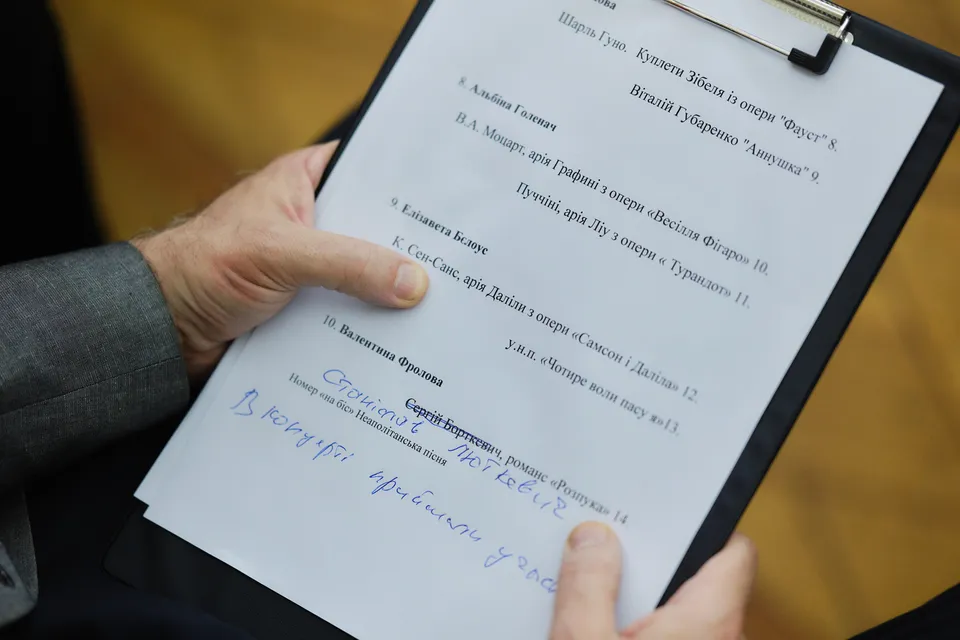 Шарль Гуно. Куплети Зібеля із опери "Фауст" 8.
Віталій Губаренко "Аннушка" 9.
8. Альбіна Голенач
В.А. Моцарт, арія Графині з опери «Весілля Фігаро» 10.
Пуччіні, арія Ліу з опери « Турандот» 11.
9. Єлізавета Бєлоус
К. Сен-Санс, арія Даліли з опери «Самсон і Даліла» 12.
у.н.п. «Чотире воли пасу я»13.
10. Валентина Фролова
Сергій Борткевич, романс «Розпука» 14
Станіслав Люткевич
Номер «на біс» Неаполітанська пісня
В концерті приймали